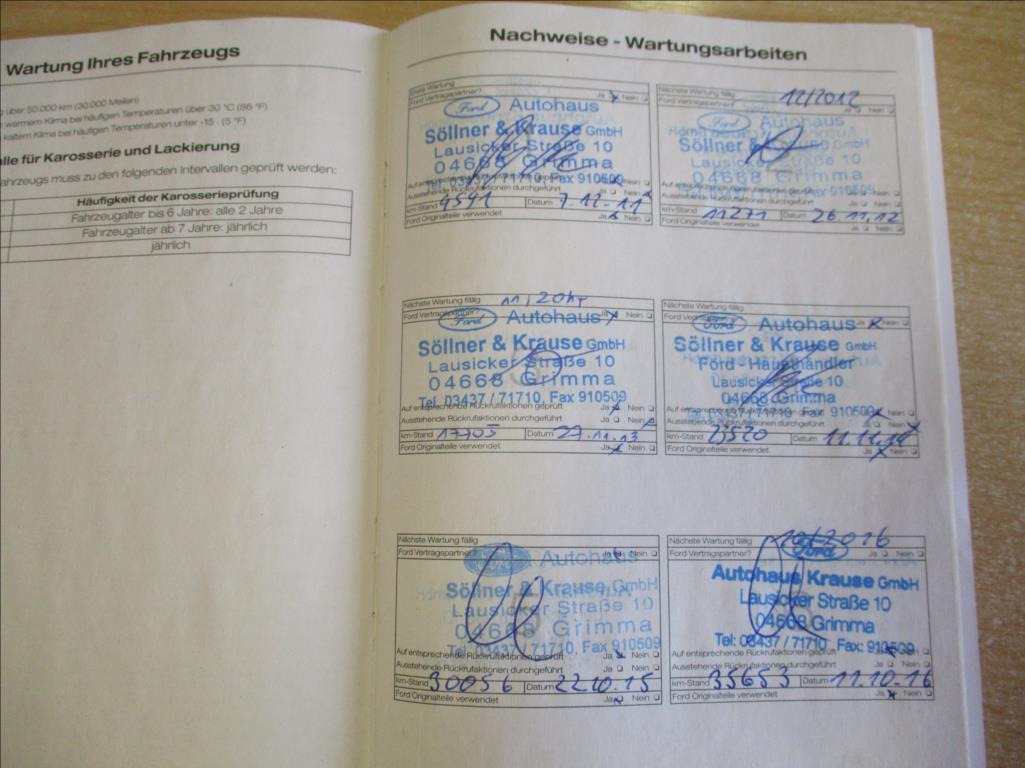 Wartung Ihres Fahrzeugs
über 50.000 km (30.000 Meilen)
warmem Klima bei häufigen Temperaturen über 30 °C (86 °F)
kaltem Klima bei häufigen Temperaturen unter -15 . (5 °F)
für Karosserie und Lackierung
muss zu den folgenden Intervallen geprüft werden:
Häufigkeit der Karosserieprüfung
Fahrzeugalter bis 6 Jahre: alle 2 Jahre
Fahrzeugalter ab 7 Jahre: jährlich
jährlich
Nachweise - Wartungsarbeiten
Erste Wartung
Ford Vertragspartner? Ja Nein
Ford Autohaus
Söllner & Krause GmbH
Lausicker Straße 10
04668 Grimma
Tel. 03437/71710, Fax 910509
Ausstehende Rückrufaktionen durchgeführt Ja Nein
km-Stand 4591 Datum 7.12.11
Ford Originalteile verwendet Ja Nein
Nächste Wartung fällig 12/2012
Ford Vertragspartner? Ja Nein
Ford Autohaus
Söllner & Krause GmbH
Lausicker Straße 10
04668 Grimma
Ausstehende Rückrufaktionen durchgeführt Ja Nein
km-Stand 11271 Datum 26.11.12
Ford Originalteile verwendet Ja Nein
Nächste Wartung fällig
Ford Vertragspartner? Ja Nein
Ford Autohaus
Söllner & Krause GmbH
Lausicker Straße 10
04668 Grimma
Tel. 03437/71710, Fax 910509
Auf entsprechende Rückrufaktionen geprüft Ja Nein
Ausstehende Rückrufaktionen durchgeführt Ja Nein
km-Stand 17705 Datum 27.11.13
Ford Originalteile verwendet Ja Nein
Nächste Wartung fällig
Ford Autohaus
Söllner & Krause GmbH
Ford-Haupthändler
Lausicker Straße 10
04668 Grimma
Tel. 03437/71710, Fax 910509
Auf entsprechende Rückrufaktionen geprüft
Ausstehende Rückrufaktionen durchgeführt Ja Nein
km-Stand 23520 Datum 11.11.14
Ford Originalteile verwendet Ja Nein
Nächste Wartung fällig
Ford Vertragspartner? Ja Nein
Autohaus
Söllner & Krause GmbH
Lausicker Straße 10
04668 Grimma
Tel. 03437/71710, Fax 910509
Auf entsprechende Rückrufaktionen geprüft Ja Nein
Ausstehende Rückrufaktionen durchgeführt Ja Nein
km-Stand 30056 Datum 22.10.15
Ford Originalteile verwendet Ja Nein
Nächste Wartung fällig 10/2016
Ford Vertragspartner? Ja Nein
Ford
Autohaus Krause GmbH
Lausicker Straße 10
04668 Grimma
Tel: 03437/71710, Fax: 910509
Auf entsprechende Rückrufaktionen geprüft
Ausstehende Rückrufaktionen durchgeführt Ja Nein
km-Stand 35653 Datum 11.10.16
Ford Originalteile verwendet Ja Nein